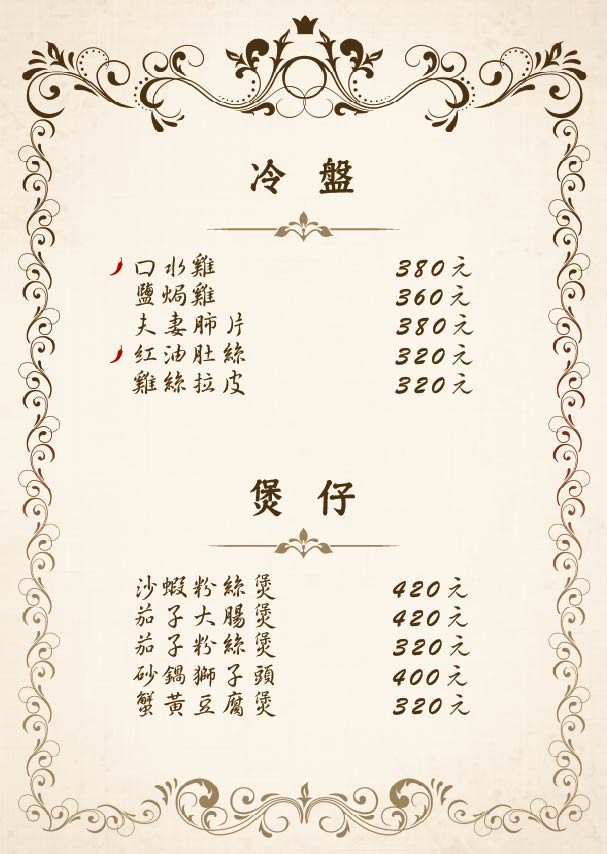 冷盤
口水雞 380元
鹽焗雞 360元
夫妻肺片 380元
紅油肚絲 320元
雞絲拉皮 320元
煲仔
沙蝦粉絲煲 420元
茄子大腸煲 420元
茄子粉絲煲 320元
砂鍋獅子頭 400元
蟹黃豆腐煲 320元